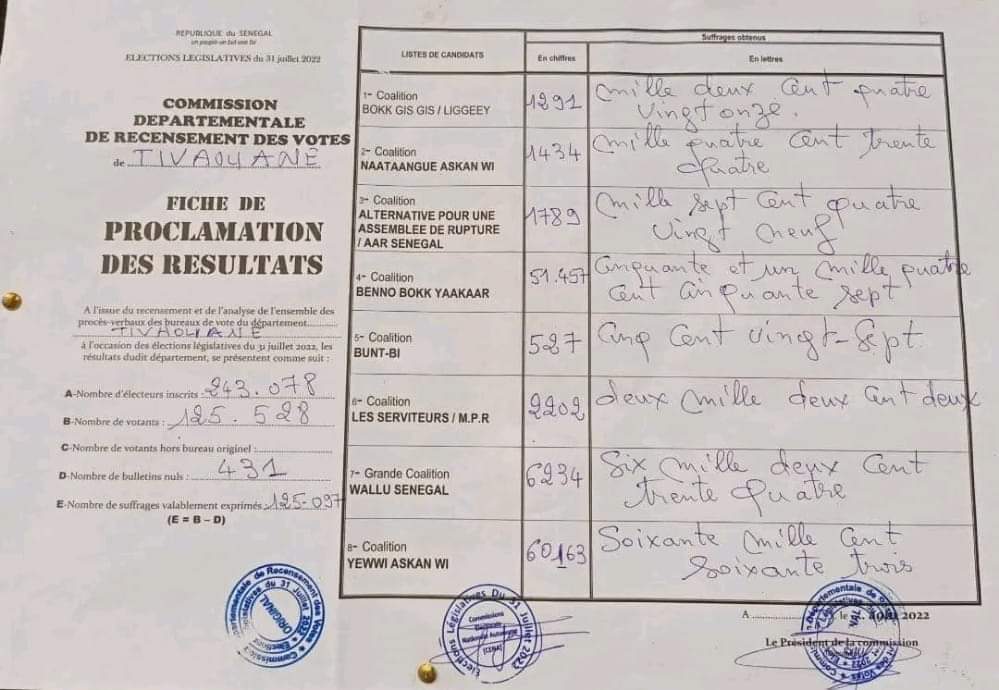 REPUBLIQUE DU SENEGAL
un peuple-un but-une foi
ELECTIONS LEGISLATIVES du 31 juillet 2022
COMMISSION
DEPARTEMENTALE
DE RECENSEMENT DES VOTES
de TIVAOUANE
FICHE DE
PROCLAMATION
DES RESULTATS
A l'issue du recensement et de l'analyse de l'ensemble des
procès-verbaux des bureaux de vote du département............
TIVAOUANE
à l'occasion des élections législatives du 31 juillet 2022, les
résultats dudit département, se présentent comme suit :
A-Nombre d'électeurs inscrits : 243.078
B-Nombre de votants : 125.528
C-Nombre de votants hors bureau originel : ............
D-Nombre de bulletins nuls : 431
E-Nombre de suffrages valablement exprimés 125.097
(E = B – D)
LISTES DE CANDIDATS
Suffrages obtenus
En chiffres
En lettres
1- Coalition
BOKK GIS GIS / LIGGEEY
1291
mille deux cent quatre
vingt onze.
2- Coalition
NAATAANGUE ASKAN WI
1434
mille quatre cent trente
quatre
3- Coalition
ALTERNATIVE POUR UNE
ASSEMBLEE DE RUPTURE
/ AAR SENEGAL
1789
mille sept cent quatre
vingt neuf
4- Coalition
BENNO BOKK YAAKAAR
51.457
cinquante et un mille quatre
cent cinquante sept
5- Coalition
BUNT-BI
527
cinq cent vingt-sept.
6- Coalition
LES SERVITEURS / M.P.R
2202
deux mille deux cent deux
7- Grande Coalition
WALLU SENEGAL
6234
Six mille deux cent
trente quatre
8- Coalition
YEWWI ASKAN WI
60163
Soixante mille cent
soixante trois
Commission Départementale de Recensement des Votes
Elections Législatives du 31 Juillet 2022
ORIGINAL
Elections Législatives Du 31 Juillet 2022
Commission
Nationale Autonome
(CENA)
A ............ le ... août 2022
Le Président de la commission